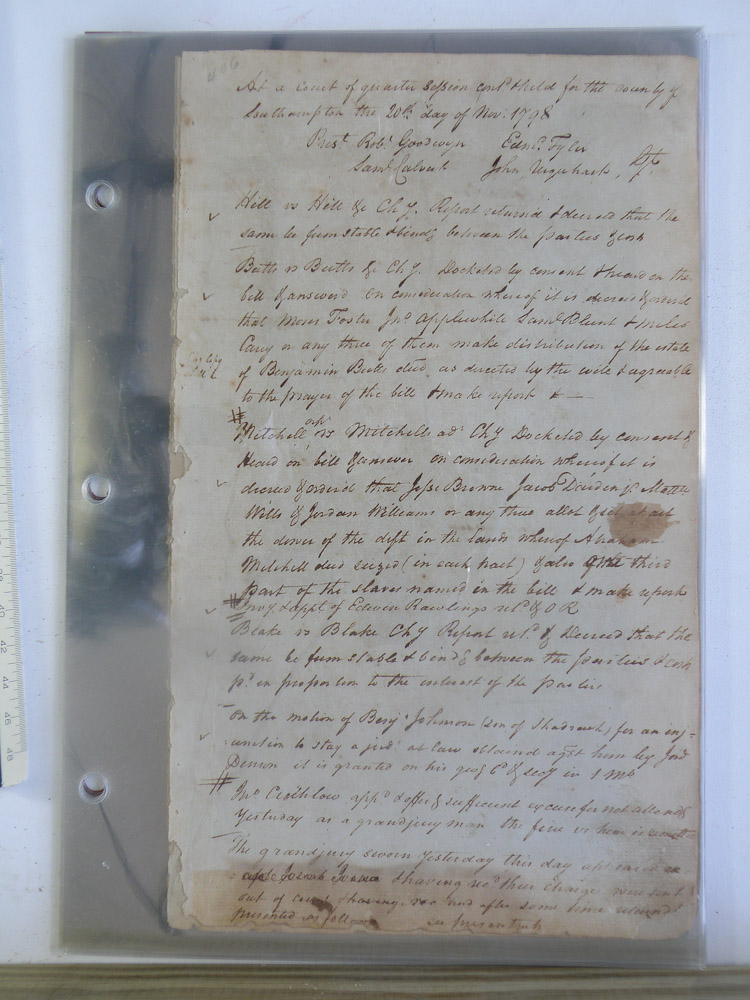 406
At a court of quarter session cont.d & held for the county of
Southampton the 20th day of Nov.r 1798
Pres.t Rob.t Goodwyn Edm.d Tyler
Sam.l Calvert John Urquhart, Gt.
Hill vs Hill &c Ch.y. Report return'd & decreed that the
same be firm stable & bind.g between the parties & cost
Butts vs Butts &c Ch.y. Docketed by consent & heard on the
bill & answers On consideration whereof it is decreed & order'd
that Moses Foster Jn.o Applewhite Sam.l Blunt & Miles
Cary or any three of them make distribution of the estate
of Benjamin Butts dec'd as directed by the will & agreeable
to the prayer of the bill & make report &c —
Mitchell vs Mitchells ad.r Ch.y Docketed by consent &
Heard on bill & answer on consideration whereof it is
decreed & order'd that Jesse Browne Jacob Darden j.r Matt
Wills & Jordan Williams or any three allot &
the dower of the deft in the lands whereof Abraham
Mitchell died seized (in each tract) & also third
part of the slaves named in the bill & make report
Inv.y & app.t of Edwin Rawlings ret.d & O R
Blake vs Blake Ch.y Report ret.d & Decreed that the
same be firm stable & bind.g between the parties & cost
p.d in proportion to the interest of the parties
On the motion of Benj.n Johnson (son of Shadrach) for an inj=
unction to stay a jud.t at law obtained ag.st him by Jord.
Denson it is granted on his giv.g b.d & secy in 1 m.o
Jn.o Crithlow app.d & offer.g sufficient excuse for not attend.g
Yesterday as a grandjury man the fine vs him is
The grandjury sworn yesterday this day appeared
& having rec.d their charge were sent
out of court & having and after some time return'd
presented as follows